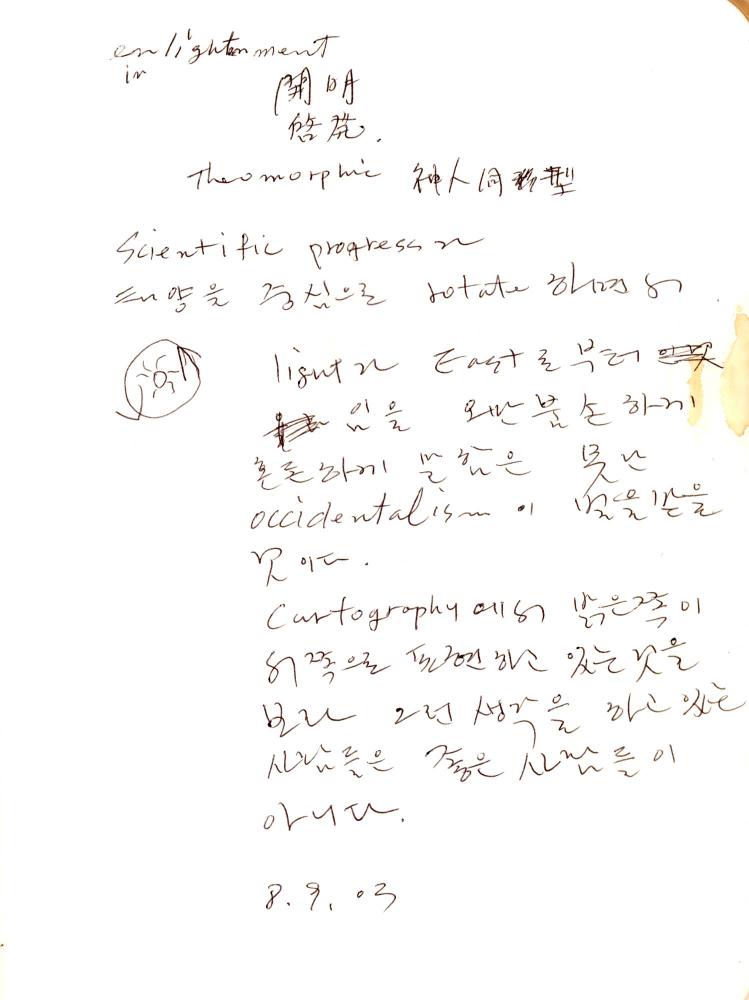 enlightenment
in
開明
啓発.
Theomorphic 神人同型
Scientific progress가
태양을 중심으로 rotate 하면서
light가 East로부터
임을 오만불손하게
혼돈하게 말함은 못난
occidentalism이 벌을받을
것이다.
Cartography에서 밝은쪽이
서쪽으로 표현하고 있는것을
보라 그런 생각을 하고있는
사람들은 좋은 사람들이
아니다.
8.9.03